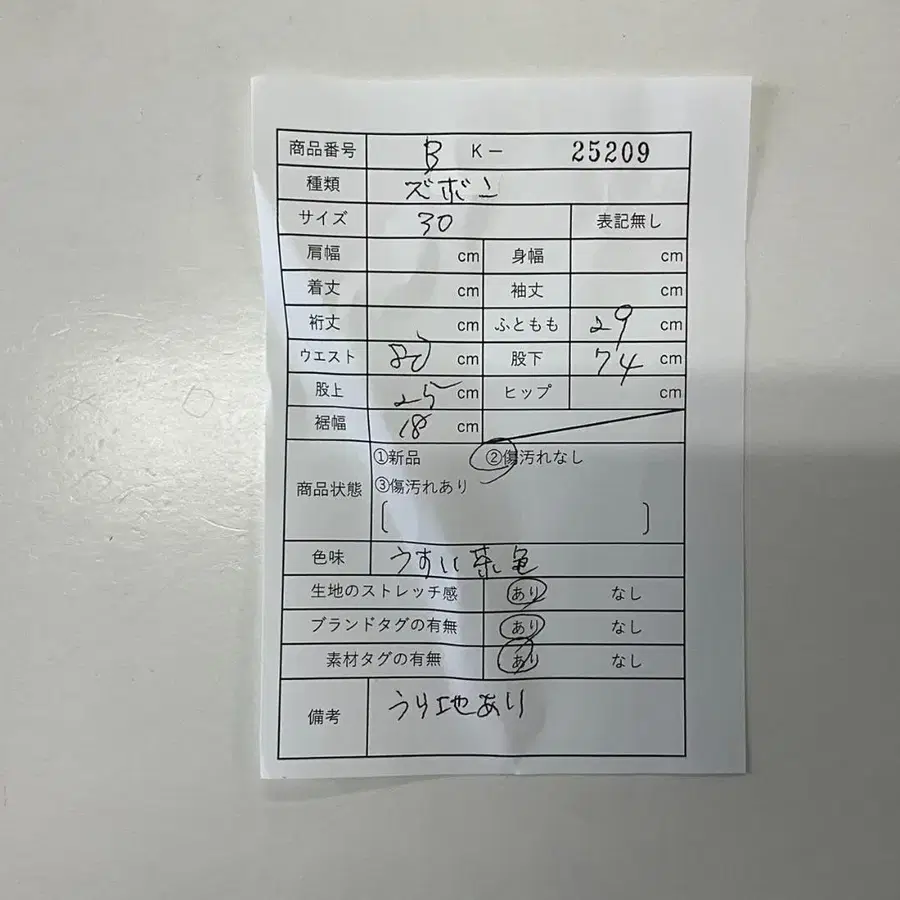 商品番号 B K- 25209
種類 ズボン
サイズ 30 表記無し
肩幅 cm 身幅 cm
着丈 cm 袖丈 cm
裄丈 cm ふともも 29 cm
ウエスト 80 cm 股下 74 cm
股上 25 cm ヒップ cm
裾幅 18 cm
商品状態 ①新品 ②傷汚れなし
③傷汚れあり
[ ]
色味 うすい茶色
生地のストレッチ感 あり なし
ブランドタグの有無 あり なし
素材タグの有無 あり なし
備考 うり地あり